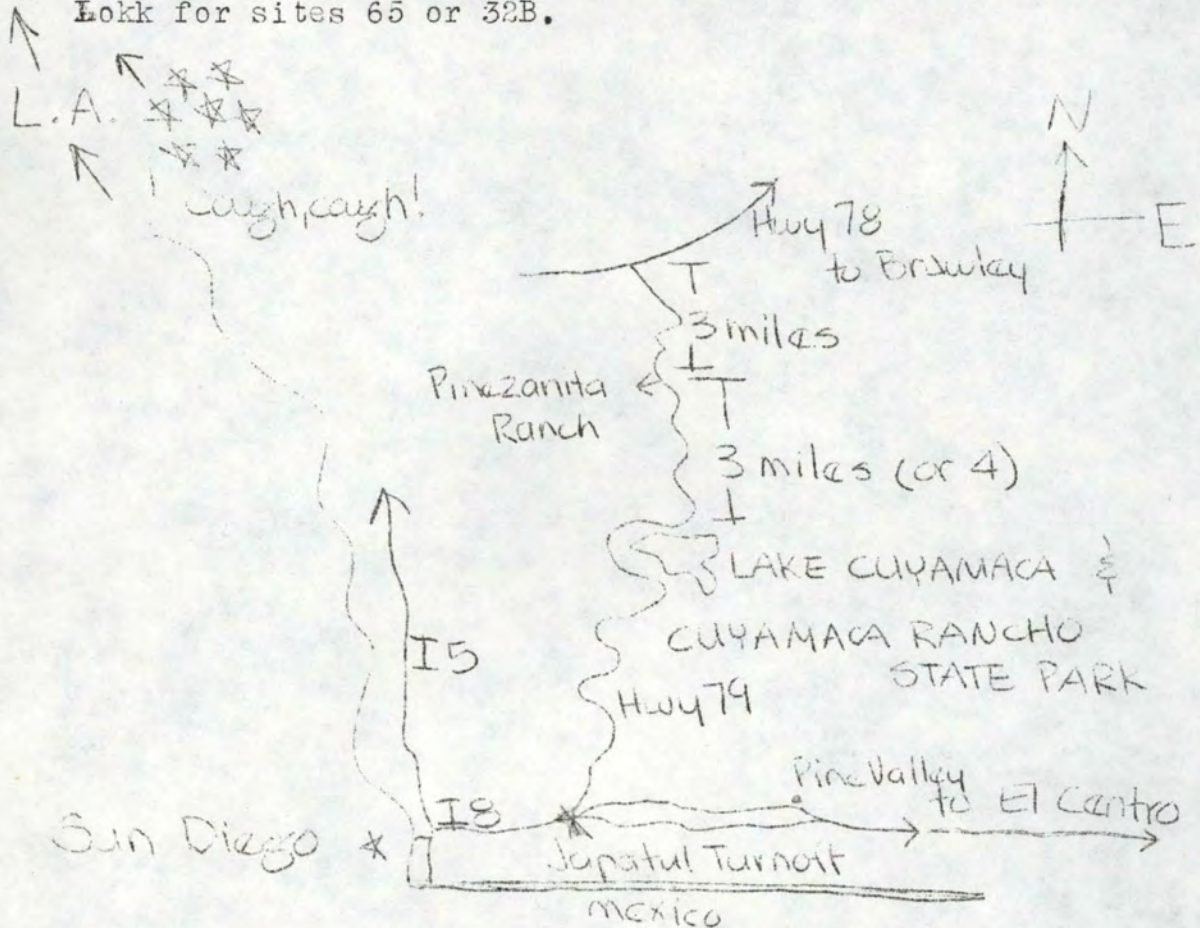 Lokk for sites 65 or 32B.
L.A.
cough, cough!
N
E
Hwy 78
to Brawley
3 miles
Pinezanita
Ranch
3 miles (or 4)
LAKE CUYAMACA &
CUYAMACA RANCHO
STATE PARK
I5
Hwy 79
Pine Valley
to El Centro
I8
San Diego
Japatul Turnoff
Mexico